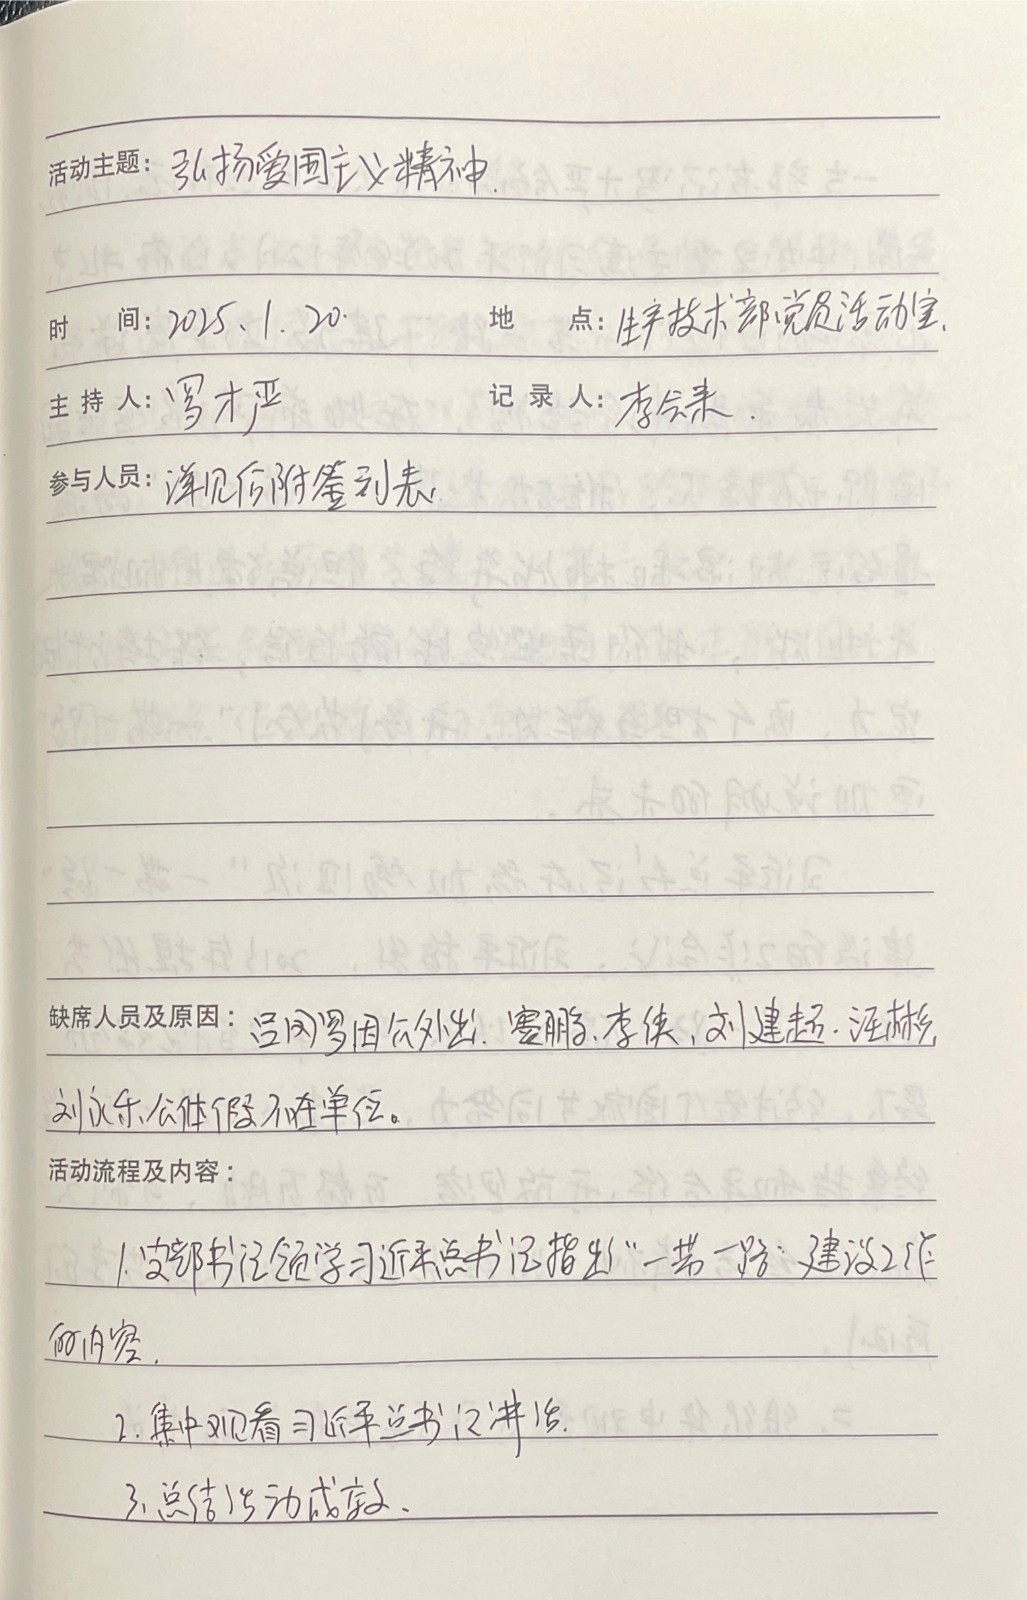 活动主题：弘扬爱国主义精神.
时 间：2025.1.20. 地 点：生产技术部党员活动室.
主 持 人：罗才严 记 录 人：李会来.
参与人员：详见后附签到表.
缺席人员及原因：吕网罗因公外出. 骞鹏、李侠、刘建超、汪彬彬
刘永乐公休假不在单位。
活动流程及内容：
1.支部书记领学习近平总书记指出“一带一路”建设工作
的内容.
2.集中观看习近平总书记讲话.
3.总结活动成效.